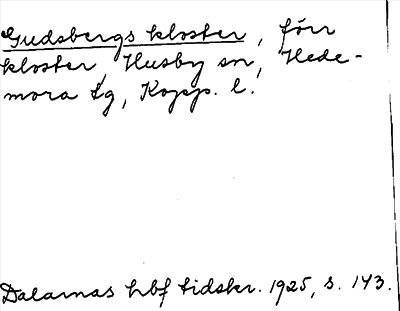 Gudsbergs kloster, förr
kloster, Husby sn, Hede-
mora tg, Kopp. l.
Dalarnas hbf tidskr. 1925, s. 143.